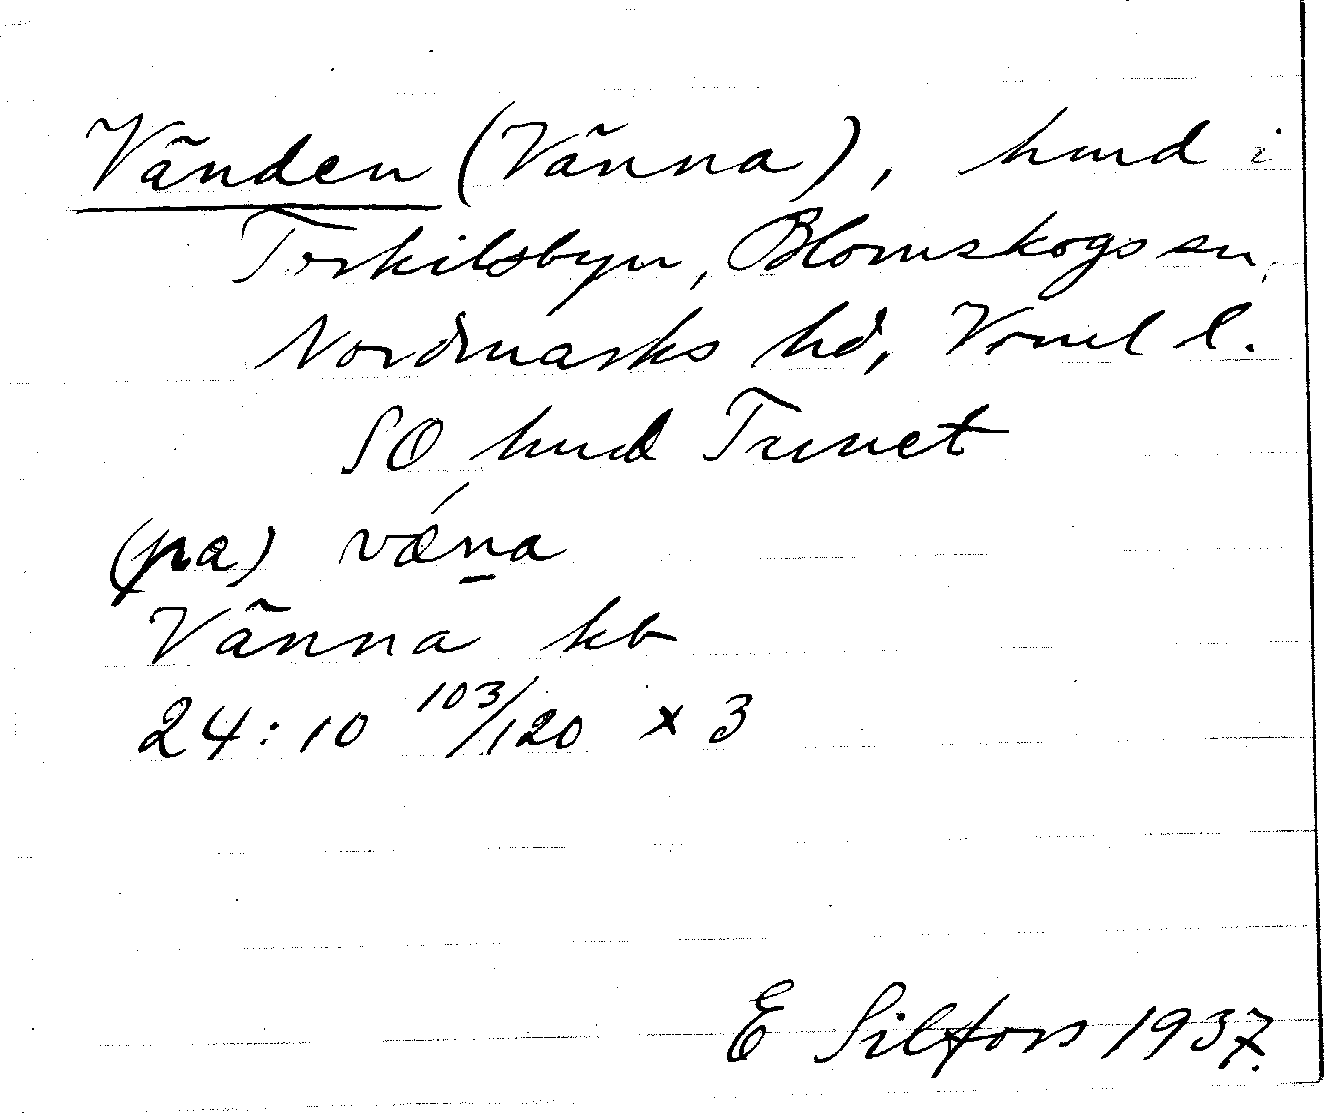 Vänden (Vänna), hmd i
Torkilsbyn, Blomskogs sn,
Nordmarks hd, Vrml l.
SO hmd Trunet
(pa) vǽn̠a
Vänna kb
24:10 103/120 x 3
E Silfors 1937.